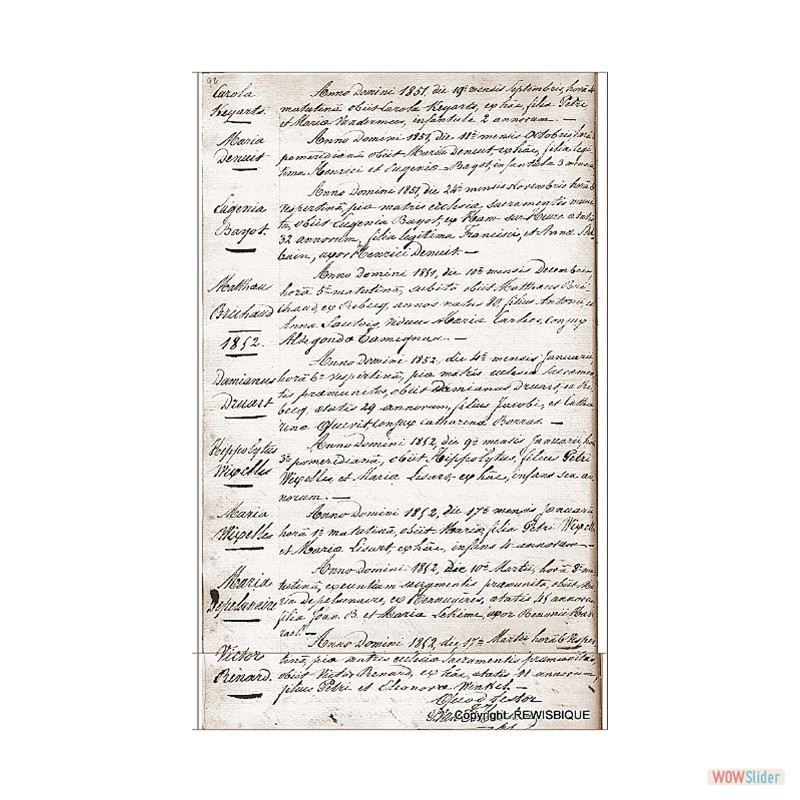 92
Carola
Keyarts.
Anno Domini 1851 die 19ª mensis Septembris, horâ 4
matutinâ obiit Carola Keyarts, ex hâc, filia Petri
et Maria Vandermeus, infantula 2 annorum. —
Maria
Denuit
Anno Domini 1851, die 11ª mensis Octobris horâ
pomeridianâ obiit Maria Denuit ex hâc, filia legi
tima Henrici et Eugenia Bayot, infantula 3 mens
Eugenia
Bayot.
Anno Domini 1851, die 24ª mensis Novembris horâ 6
vespertinâ, piæ matris ecclesia, sacramentis muni
ta, obiit Eugenia Bayot, ex Ham-sur-Heure ætatis
32 annorum, filia legitima Francisci, et Anna
bain, uxor Henrici Denuit. —
Matthæus
Brichaud
1852.
Anno Domini 1851, die 10ª mensis Decembris,
horâ 5ª matutinâ, subitò obiit Matthæus Bri
chaud, ex Rebecq, annos natus 80, filius Antonii, et
Anna viduus Maria conjux
Aldegonda —
Damianus
Druart
Anno Domini 1852, die 4ª mensis Januarii
horâ 6ª vespertinâ, piæ matris ecclesia sacramen
tis præmunitus, obiit Damianus Druart, ex Re
becq ætatis 29 annorum, filius Jacobi, et Catha
rina conjux Catharina Borras. —
Hippolytus
Wixelles
Anno Domini 1852, die 9ª mensis Januarii, horâ
3ª pomeridianâ, obiit Hippolytus, filius Petri
Wixelles, et Maria Lisart, ex hâc, infans sex an
norum. —
Maria
Wixelles
Anno Domini 1852, die 17ª mensis Januarii
horâ 1ª matutinâ, obiit Maria, filia Petri Wixelles
et Maria Lisart, ex hâc, infans 4 annorum —
Maria
Depelsenaire
Anno Domini 1852, die 10ª Martii, horâ 8ª ma
tutinâ, exeuntium sacramentis præmunita, obiit Ma
ria Depelsenaire, ex ætatis 45 annorum
filia Joan. B. et Maria uxor
Victor
Renard.
Anno Domini 1852, die 17ª Martis horâ 6 vesper
tinâ, piæ matris ecclesia sacramentis præmunitus,
obiit Victor Renard, ex hâc, ætatis 41 annorum,
filius Petri et Eleonora Winkel. —
Quod testor
Copyright REWISBIQUE
WOWSlider